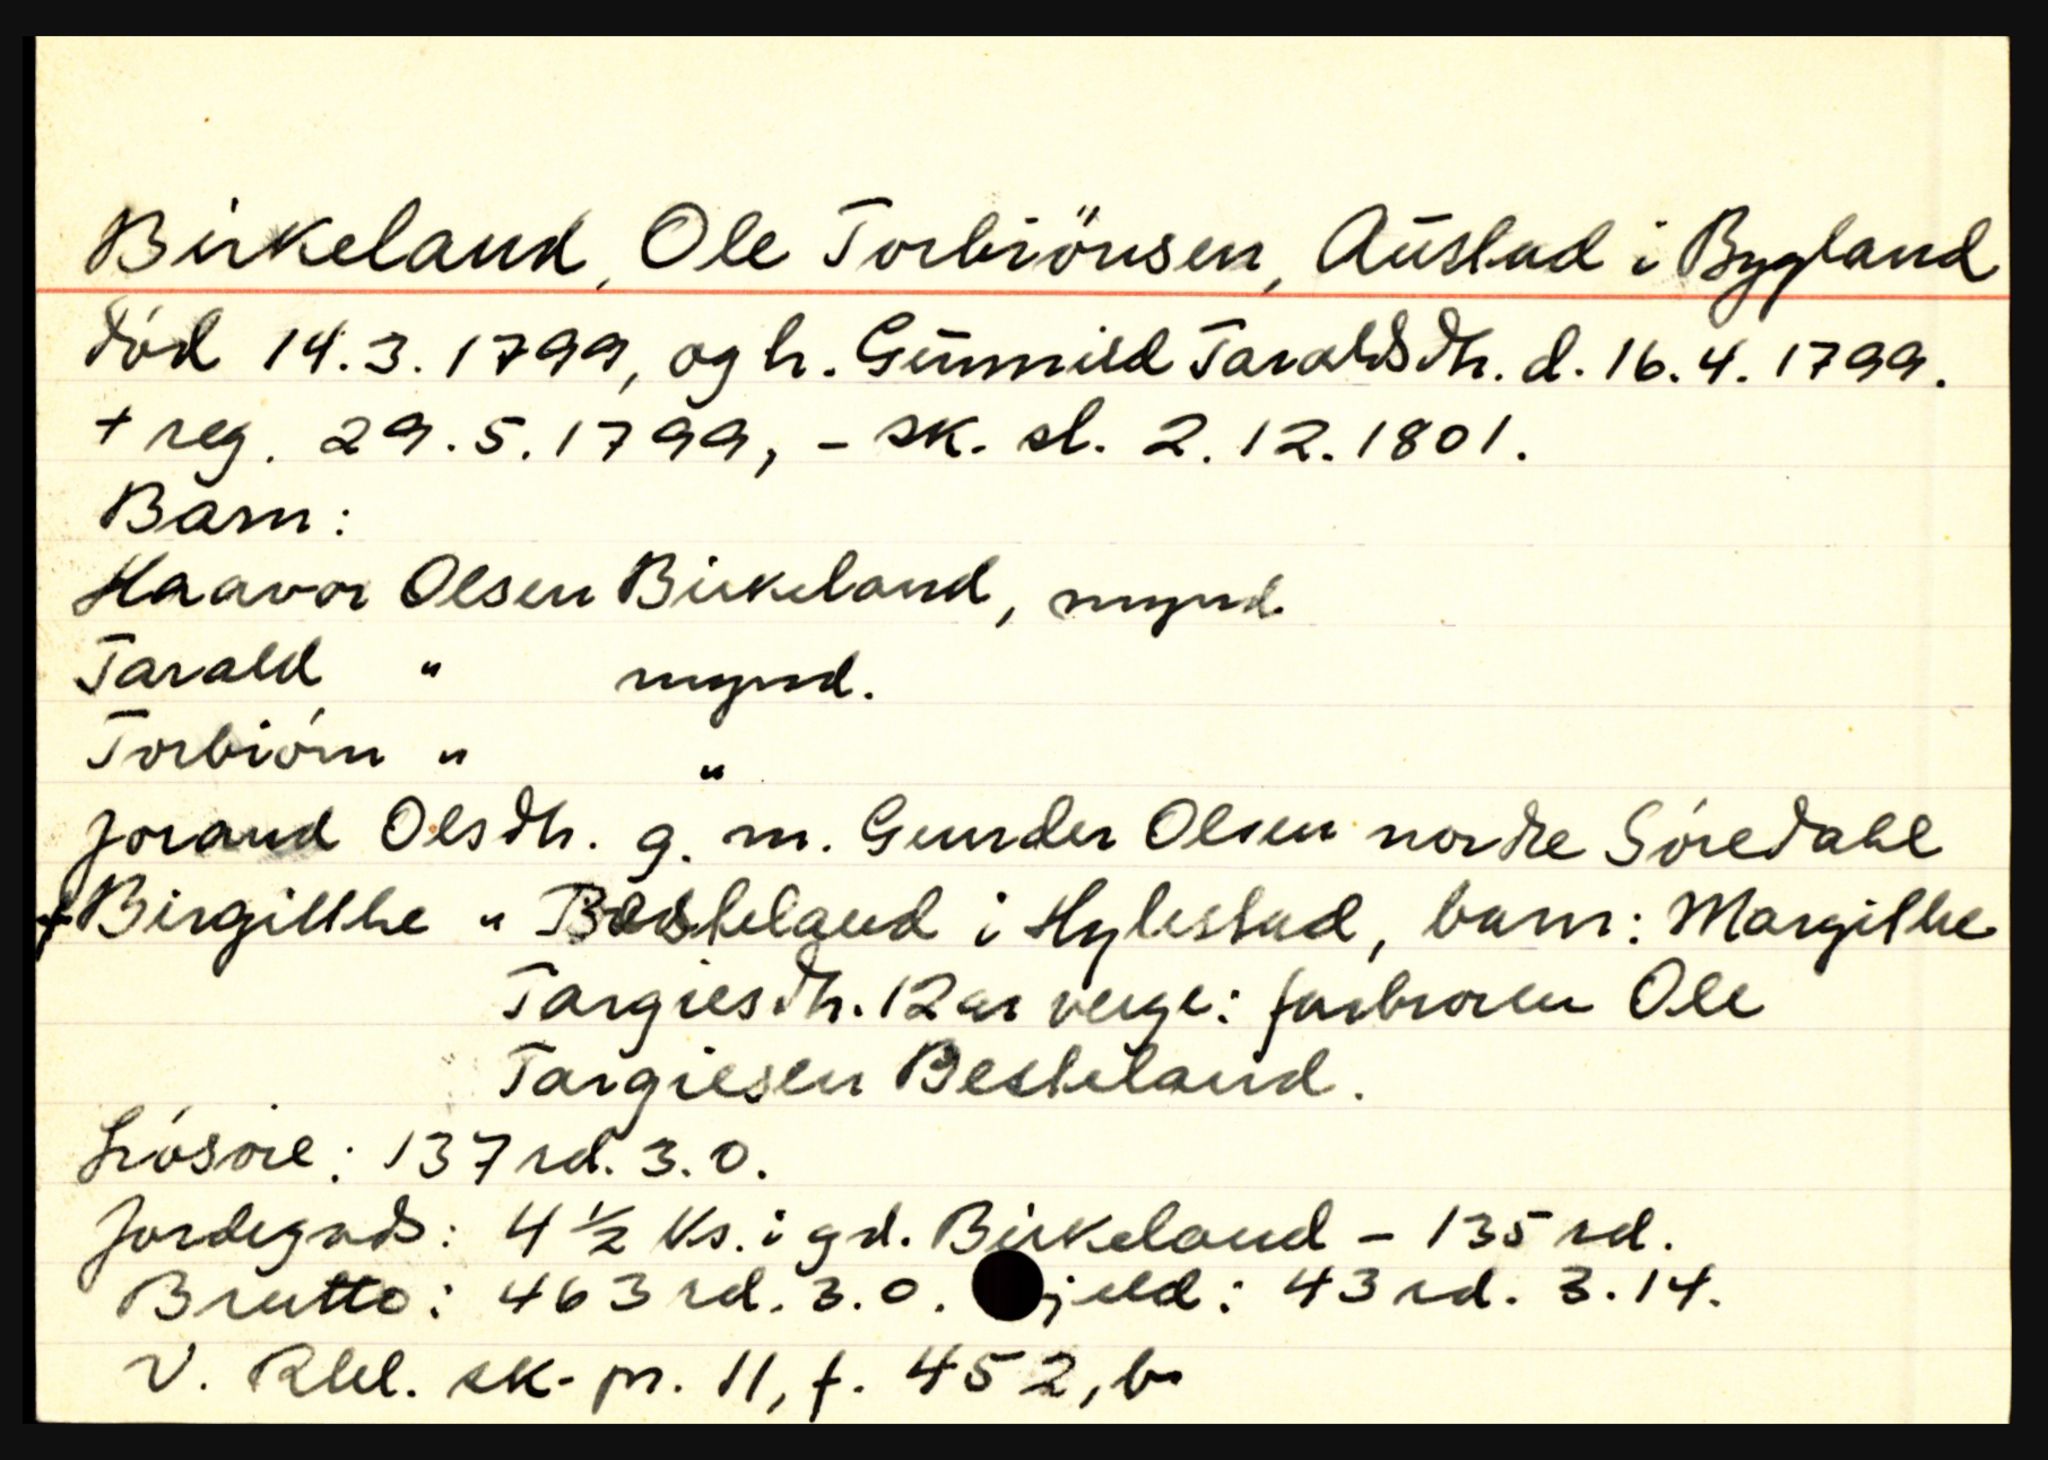 Birkeland, Ole Torbiönsen, Aüstad i Bygland
död 14.3.1799, og h. Günnild Taraldsdh. d. 16.4.1799.
+ reg. 29.5.1799, - sk. sl. 2.12.1801.
Barn:
Haavor Olsen Birkeland, mynd.
Tarald " mynd.
Torbiórn " "
Jorand Olsdh. g. m. Gunder Olsen nordre Sóredahl
+ Birgitthe " Besteland i Hylestad, barn: Margithe
Targiesdh. 12 år verge: farbroren Ole
Targiesen Besteland.
Lósóre: 137 rd. 3.0.
Jordegods: 4 ½ ks. i gd. Birkeland - 135 rd.
Brutto: 463 rd. 3.0. jeld: 43 rd. 3.14.
V. Rbl. sk. pr. 11, f. 452, b